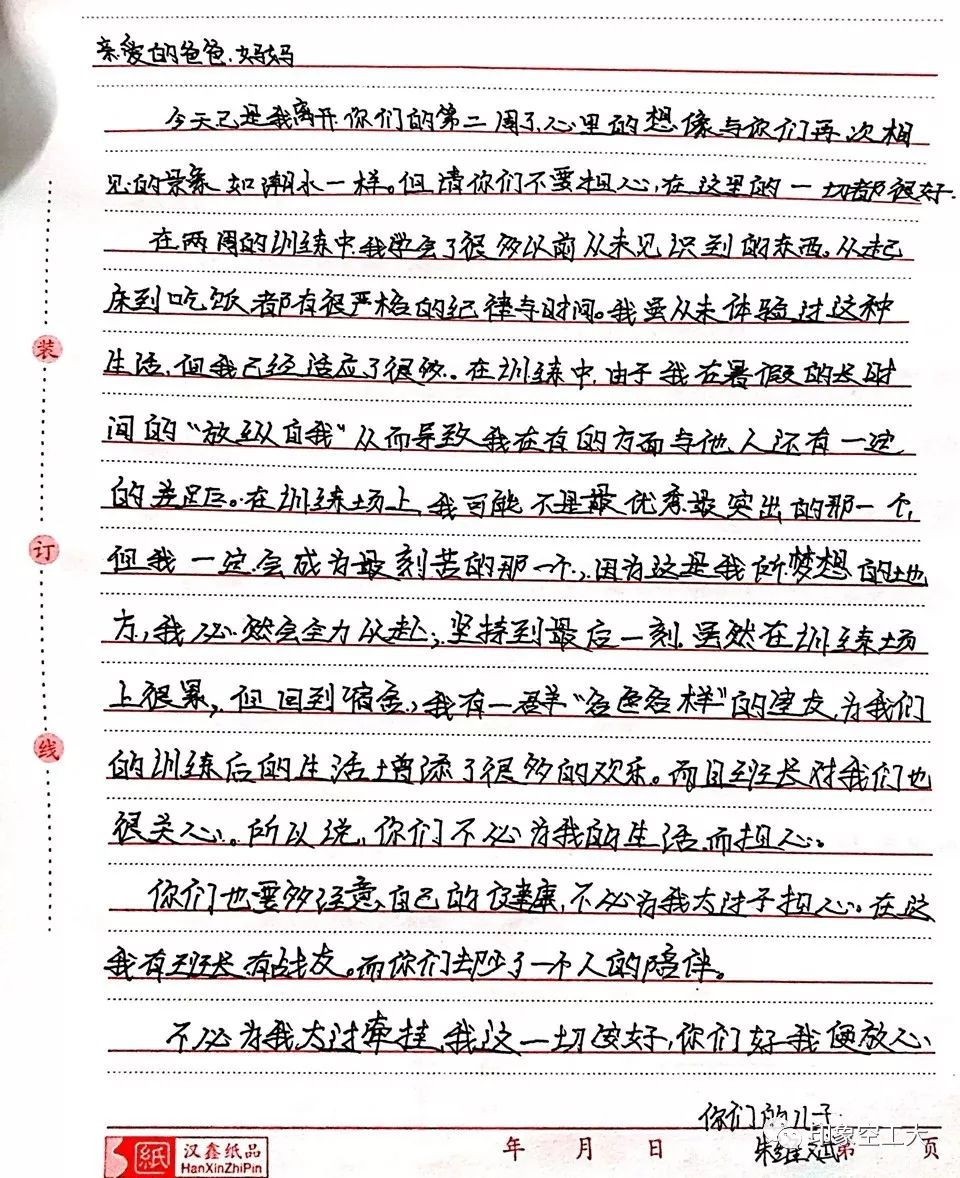 亲爱的爸爸.妈妈
今天已是我离开你们的第二周了,心里的想像与你们再次相
见的景象如潮水一样。但请你们不要担心,在这里的一切都很好.
在两周的训练中,我学会了很多以前从未见识到的东西。从起
床到吃饭都有很严格的纪律与时间。我虽从未体验过这种
生活,但我已经适应了很多。在训练中,由于我在暑假的长时
间的“放纵自我”从而导致我在有的方面与他人还有一定
的差距。在训练场上,我可能不是最优秀最突出的那一个,
但我一定会成为最刻苦的那一个,因为这是我所梦想的地
方,我必然会全力以赴,坚持到最后一刻.虽然在训练场
上很累,但回到宿舍,我有一群“各色各样”的室友,为我们
的训练后的生活增添了很多的欢乐。而且班长对我们也
很关心。所以说,你们不必为我的生活而担心。
你们也要多注意自己的健康,不必为我太过于担心。在这
我有班长有战友。而你们却少了一个人的陪伴。
不必为我太过牵挂,我这一切安好,你们好我便放心
你们的儿子
朱
装
订
线
纸 汉鑫纸品 年 月 日 第 页
HanXinZhiPin
印象空工大